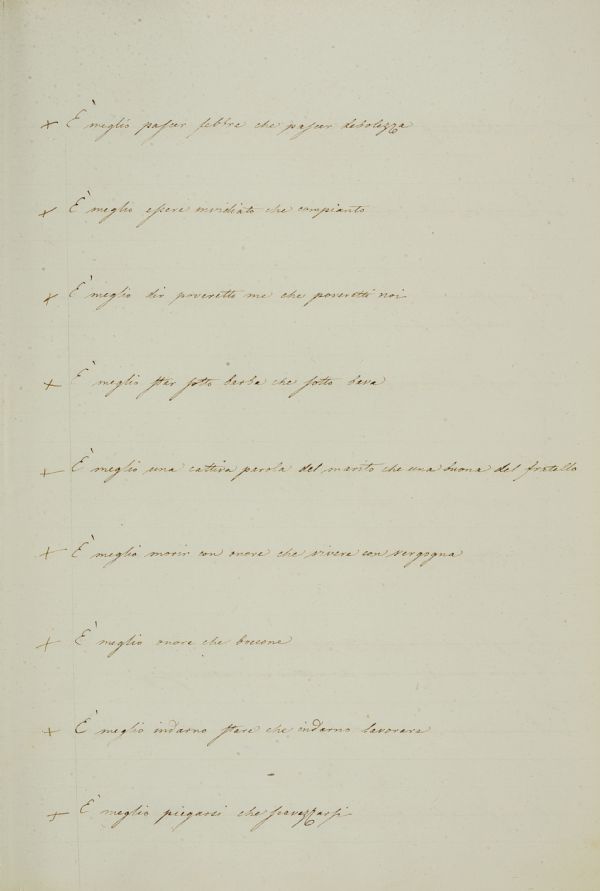 × È meglio pascer febbre che pascer debolezza
× È meglio essere invidiato che compianto
× È meglio dir poveretto me che poveretti noi
× È meglio star sotto barba che sotto bava
× È meglio una cattiva parola del marito che una buona del fratello
× È meglio morir con onore che vivere con vergogna
× È meglio onore che boccone
× È meglio indarno stare che indarno lavorare
× È meglio piegarsi che scavezzarsi